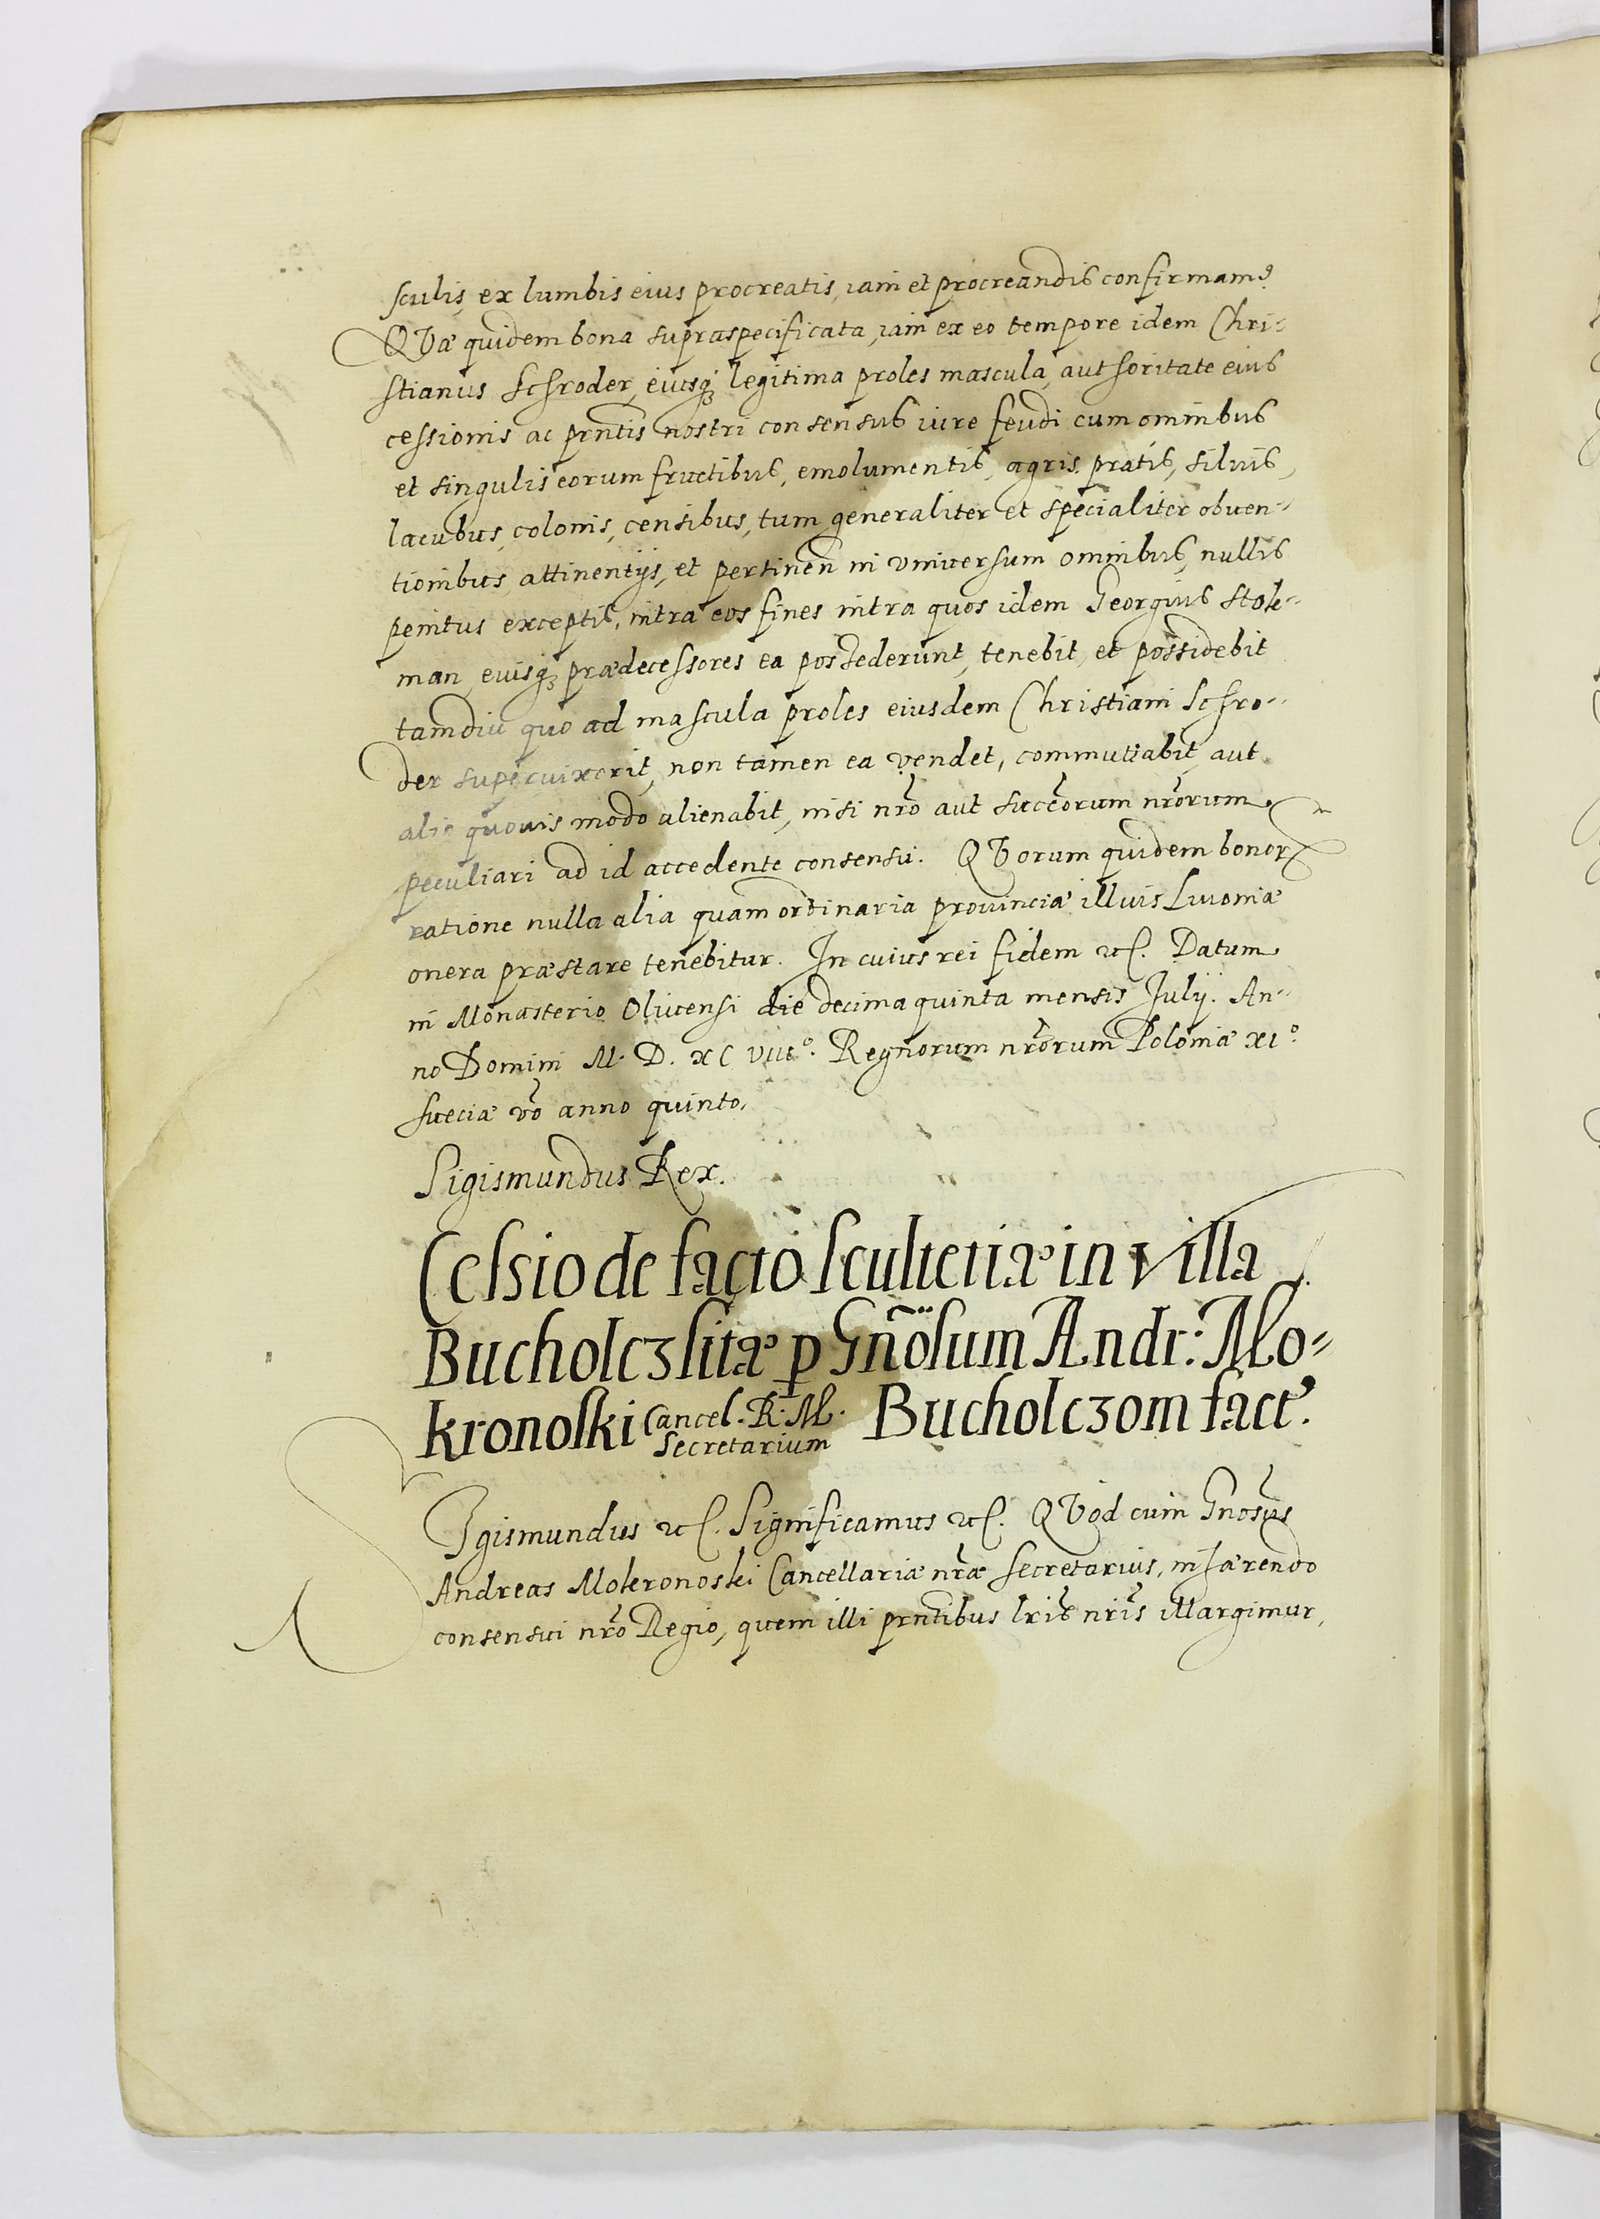 sculis, ex lumbis eius procreatis, iam et procreandis confirmamꝰ
QVæ quidem bona supraspecificata, iam ex eo tempore idem Chri-
stianus Schroder, eiusqꝫ legitima proles mascula, authoritate eius
cessionis ac prntis nostri consensus iure feudi cum omnibus
et singulis eorum fructibus, emolumentis, agris, pratis, siluis,
lacubus, colonis, censibus, tum generaliter et specialiter obuen-
tionibus, attinentijs, et pertinen in vniuersum omnibus, nullis
penitus exceptis, intra eos fines intra quos idem Georgius Stok-
man, eiusqꝫ prædecessores ea possederunt, tenebit, et possidebit
tamdiu quo ad mascula proles eiusdem Christiani Schro-
der superuixerit, non tamen ea vendet, commutabit, aut
alio quouis modo alienabit, nisi nro aut succorum nrorum
peculiari ad id accedente consensu. QVorum quidem bonorꝝ
ratione nulla alia quam ordinaria prouinciæ illius Liuoniæ
onera præstare tenebitur. In cuius rei fidem etc. Datum
in Monasterio Oliuensi die decima quinta mensis Julij. An-
no Domini M. D. XC viiiº. Regnorum nrorum Poloniæ xiº.
Sueciæ vo anno quinto.
Sigismundus Rex.
Cessio de facto scultetiæ in villa
Bucholcz sitæ ꝑ Gnosum Andr: Mo-
kronoski Cancel. R. M.
Secretarium Bucholczom fact.
Sigismundus etc. Significamus etc. QVod cum Gnosus
Andreas Mokronoski Cancellariæ nræ Secretarius, inhærendo
consensui nro Regio, quem illi prntibus lris nris illargimur,